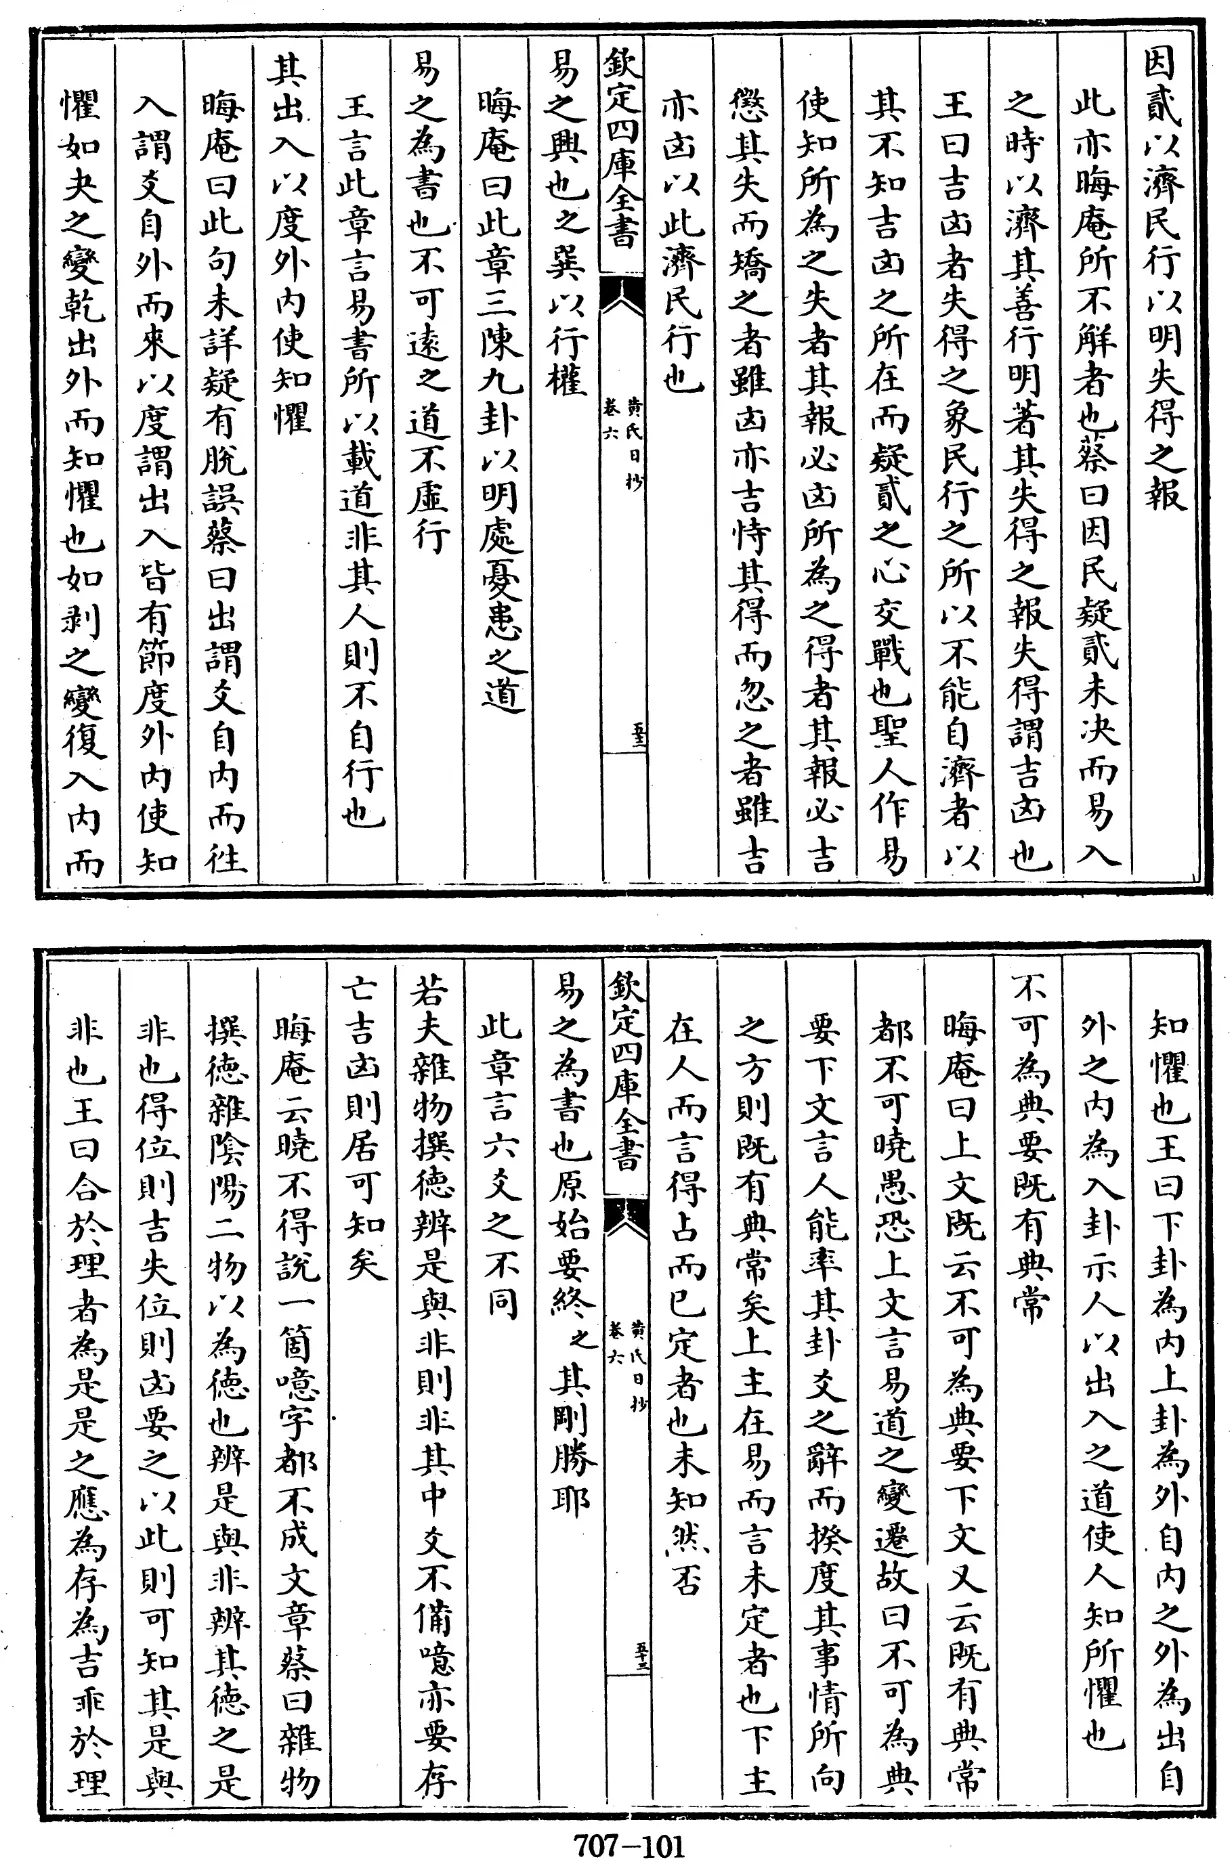 因貳以濟民行以明失得之報
此亦晦庵所不解者也蔡曰因民疑貳未决而易入
之時以濟其善行明著其失得之報失得謂吉凶也
王曰吉凶者失得之象民行之所以不能自濟者以
其不知吉凶之所在而疑貳之心交戰也聖人作易
使知所為之失者其報必凶所為之得者其報必吉
懲其失而矯之者雖凶亦吉恃其得而忽之者雖吉
亦凶以此濟民行也
欽定四庫全書
黄氏日抄
卷六
易之興也之巽以行權
晦庵曰此章三陳九卦以明處憂患之道
易之為書也不可遠之道不虚行
王言此章言易書所以載道非其人則不自行也
其出入以度外内使知懼
晦庵曰此句未詳疑有脱誤蔡曰出謂爻自内而往
入謂爻自外而來以度謂出入皆有節度外内使知
懼如夬之變乾出外而知懼也如剥之變復入内而
知懼也王曰下卦為内上卦為外自内之外為出自
外之内為入卦示人以出入之道使人知所懼也
不可為典要既有典常
晦庵曰上文既云不可為典要下文又云既有典常
都不可曉愚恐上文言易道之變遷故曰不可為典
要下文言人能率其卦爻之辭而揆度其事情所向
之方則既有典常矣上主在易而言未定者也下主
在人而言得占而已定者也未知然否
欽定四庫全書
黄氏日抄
卷六
五十三
易之為書也原始要終之其剛勝耶
此章言六爻之不同
若夫雜物撰德辨是與非則非其中爻不備噫亦要存
亡吉凶則居可知矣
晦庵云曉不得説一箇噫字都不成文章蔡曰雜物
撰德雜陰陽二物以為德也辨是與非辨其德之是
非也得位則吉失位則凶要之以此則可知其是與
非也王曰合於理者為是是之應為存為吉乖於理
707-101